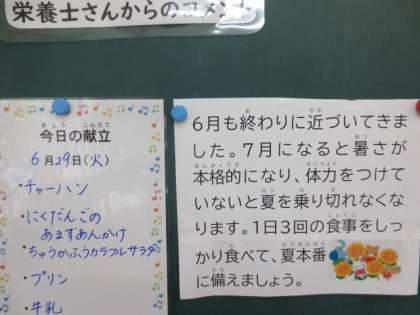 栄養士さんからのコメント
今日の献立
6月29日(火)
・チャーハン
・にくだんごの
あますあんかけ
・ちゅうかふうカラフルサラダ
・プリン
・牛乳
6月も終わりに近づいてきま
した。7月になると暑さが
本格的になり、体力をつけて
いないと夏を乗り切れなくな
ります。1日3回の食事をしっ
かり食べて、夏本番
に備えましょう。